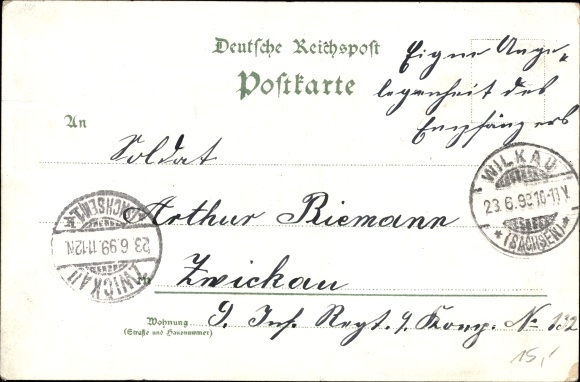 Deutsche Reichspost
Postkarte
Eigne Ange-
legenheit des
Empfängers
An
Soldat
Arthur Riemann
Zwickau
Wohnung
(Straße und Hausnummer)
9. Inf. Regt. 9. Komp. No 132
WILKAU
23.6.99 10-11V.
*(SACHSEN)*
ZWICKAU
23.6.99.11-12N.
(SACHSEN)
15,-